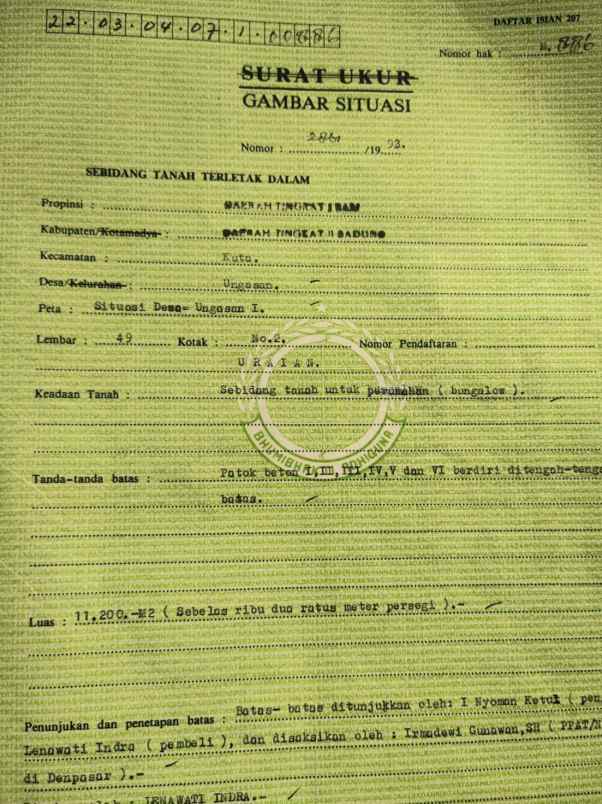 22.03.04.07.1.00886
DAFTAR ISIAN 207
Nomor hak : M. 886
SURAT UKUR
GAMBAR SITUASI
Nomor : /19 93.
SEBIDANG TANAH TERLETAK DALAM
Propinsi : DAERAH TINGKAT I BALI
Kabupaten/Kotamadya : DAERAH TINGKAT II BADUNG
Kecamatan : Kuta.
Desa/Kelurahan : Ungasan.
Peta : Situasi Desa= Ungasan I.
Lembar : 49 Kotak : No.2. Nomor Pendaftaran :
U R A I A N.
Keadaan Tanah : Sebidang tanah untuk perumahan ( bungalow ).
BHUMIBHAKTI ADHIGUNA
Tanda-tanda batas : Patok beton I,II,III,IV,V dan VI berdiri ditengah-tenga
batas.
Luas : 11.200.-M2 ( Sebelas ribu dua ratus meter persegi ).-
Penunjukan dan penetapan batas : Batas- batas ditunjukkan oleh: I Nyoman Ketut ( pen
Lenawati Indra ( pembeli ), dan disaksikan oleh : Irmadewi Gunawan,SH ( PPAT/N
di Denpasar ).-
: LENAWATI INDRA.-